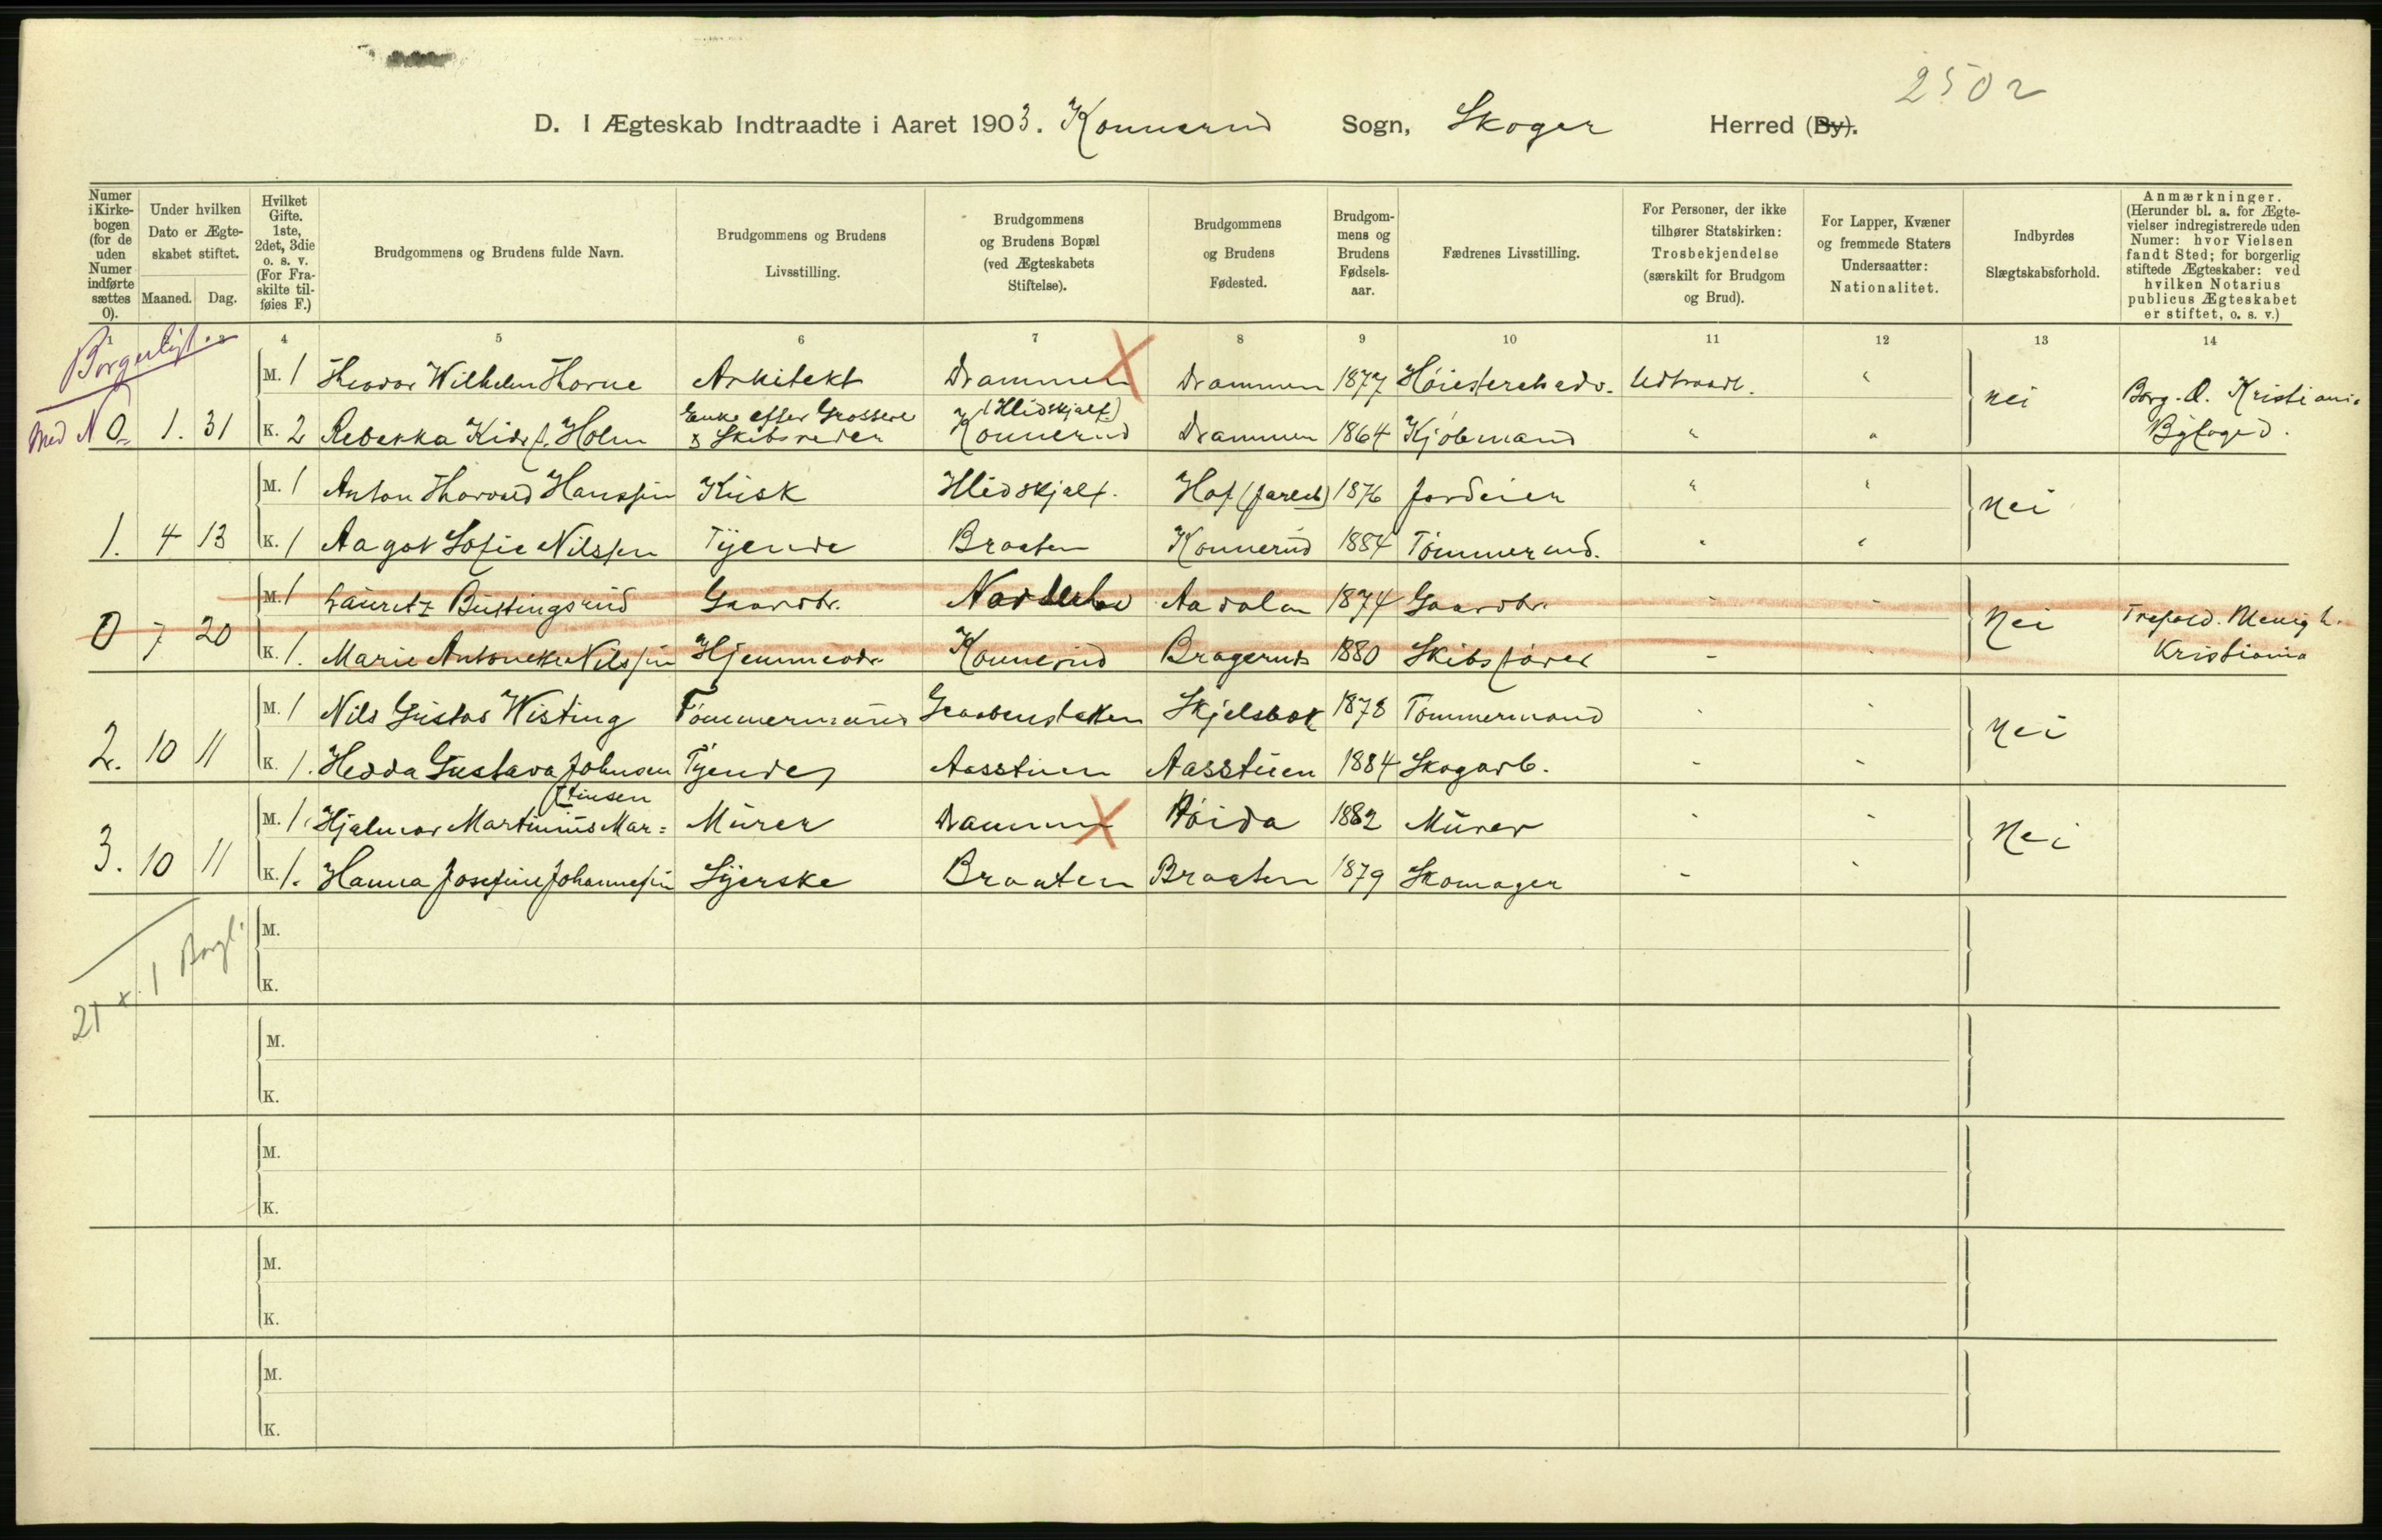 2502
D. I Ægteskab Indtraadte i Aaret 1903. Konnerud Sogn, Skoger Herred (By).
Numer i Kirkebogen (for de uden Numer indførte sættes 0).
Under hvilken Dato er Ægteskabet stiftet.
Maaned. Dag.
Hvilket Gifte. 1ste, 2det, 3die o. s. v. (For Fraskilte tilføies F.)
Brudgommens og Brudens fulde Navn.
Brudgommens og Brudens Livsstilling.
Brudgommens og Brudens Bopæl (ved Ægteskabets Stiftelse).
Brudgommens og Brudens Fødested.
Brudgommens og Brudens Fødselsaar.
Fædrenes Livsstilling.
For Personer, der ikke tilhører Statskirken: Trosbekjendelse (særskilt for Brudgom og Brud).
For Lapper, Kvæner og fremmede Staters Undersaatter: Nationalitet.
Indbyrdes Slægtskabsforhold.
Anmærkninger. (Herunder bl. a. for Ægtevielser indregistrerede uden Numer: hvor Vielsen fandt Sted; for borgerlig stiftede Ægteskaber: ved hvilken Notarius publicus Ægteskabet er stiftet, o. s. v.)
4 5 6 7 8 9 10 11 12 13 14
Borgerligt
M. 1 Theodor Wilhelm Horne Arkitekt Drammen Drammen 1877 Høiesteretsadv. Udtraadt. " nei Borg. O. Kristiania
Enke efter Grosserer (Hlidskjalf)
Med N 0 1. 31 K. 2 Rebekka f. Holm & Skibsreder Konnerud Drammen 1864 Kjøbmand " " Byfoged.
M. 1 Anton Thorvald Hanssen Kusk Hlidskjalf. Hof (Jarlsb) 1876 Jordeier " " nei
1. 4 13 K. 1 Aagot Sofie Nilssen Tjende Braaten Konnerud 1884 Tømmermd. " "
M. 1 Lauritz Buttingsrud Gaardbr. Norderhov Aadalen 1874 Gaardbr. - - Nei Trefold. Menigh.
0 7 20 K. 1. Marie Antonette Nilssen Hjemmevær. Konnerud Bragernes 1880 Skibsfører - - Kristiania
M. 1 Nils Gustav Wisting Tømmermand Graabenstakken Skjelsbæk 1878 Tømmermand - - Nei
2. 10 11 K. 1. Hedda Gustava Johnsen Tjende Aasstuen Aasstuen 1884 Skogarb. - -
tinsen
M. 1. Hjalmar Martinius Mar= Murer Drammen Høida 1882 Murer - - Nei
3. 10 11 K. 1. Hanna Josefine Johannessen Syerske Braaten Braaten 1879 Skomager - -
M.
1 Borgl.
K.
21 x
M.
K.
M.
K.
M.
K.
M.
K.